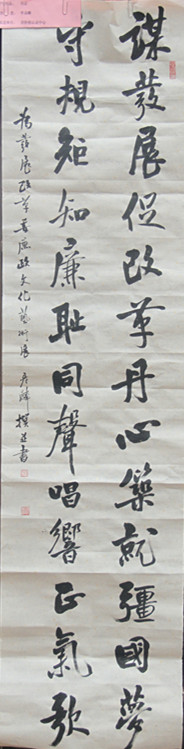 謀發展促改革丹心築就疆國夢
守規矩知廉恥同聲唱響正氣歌
為發展改革委廉政文化藝術展
撰並書